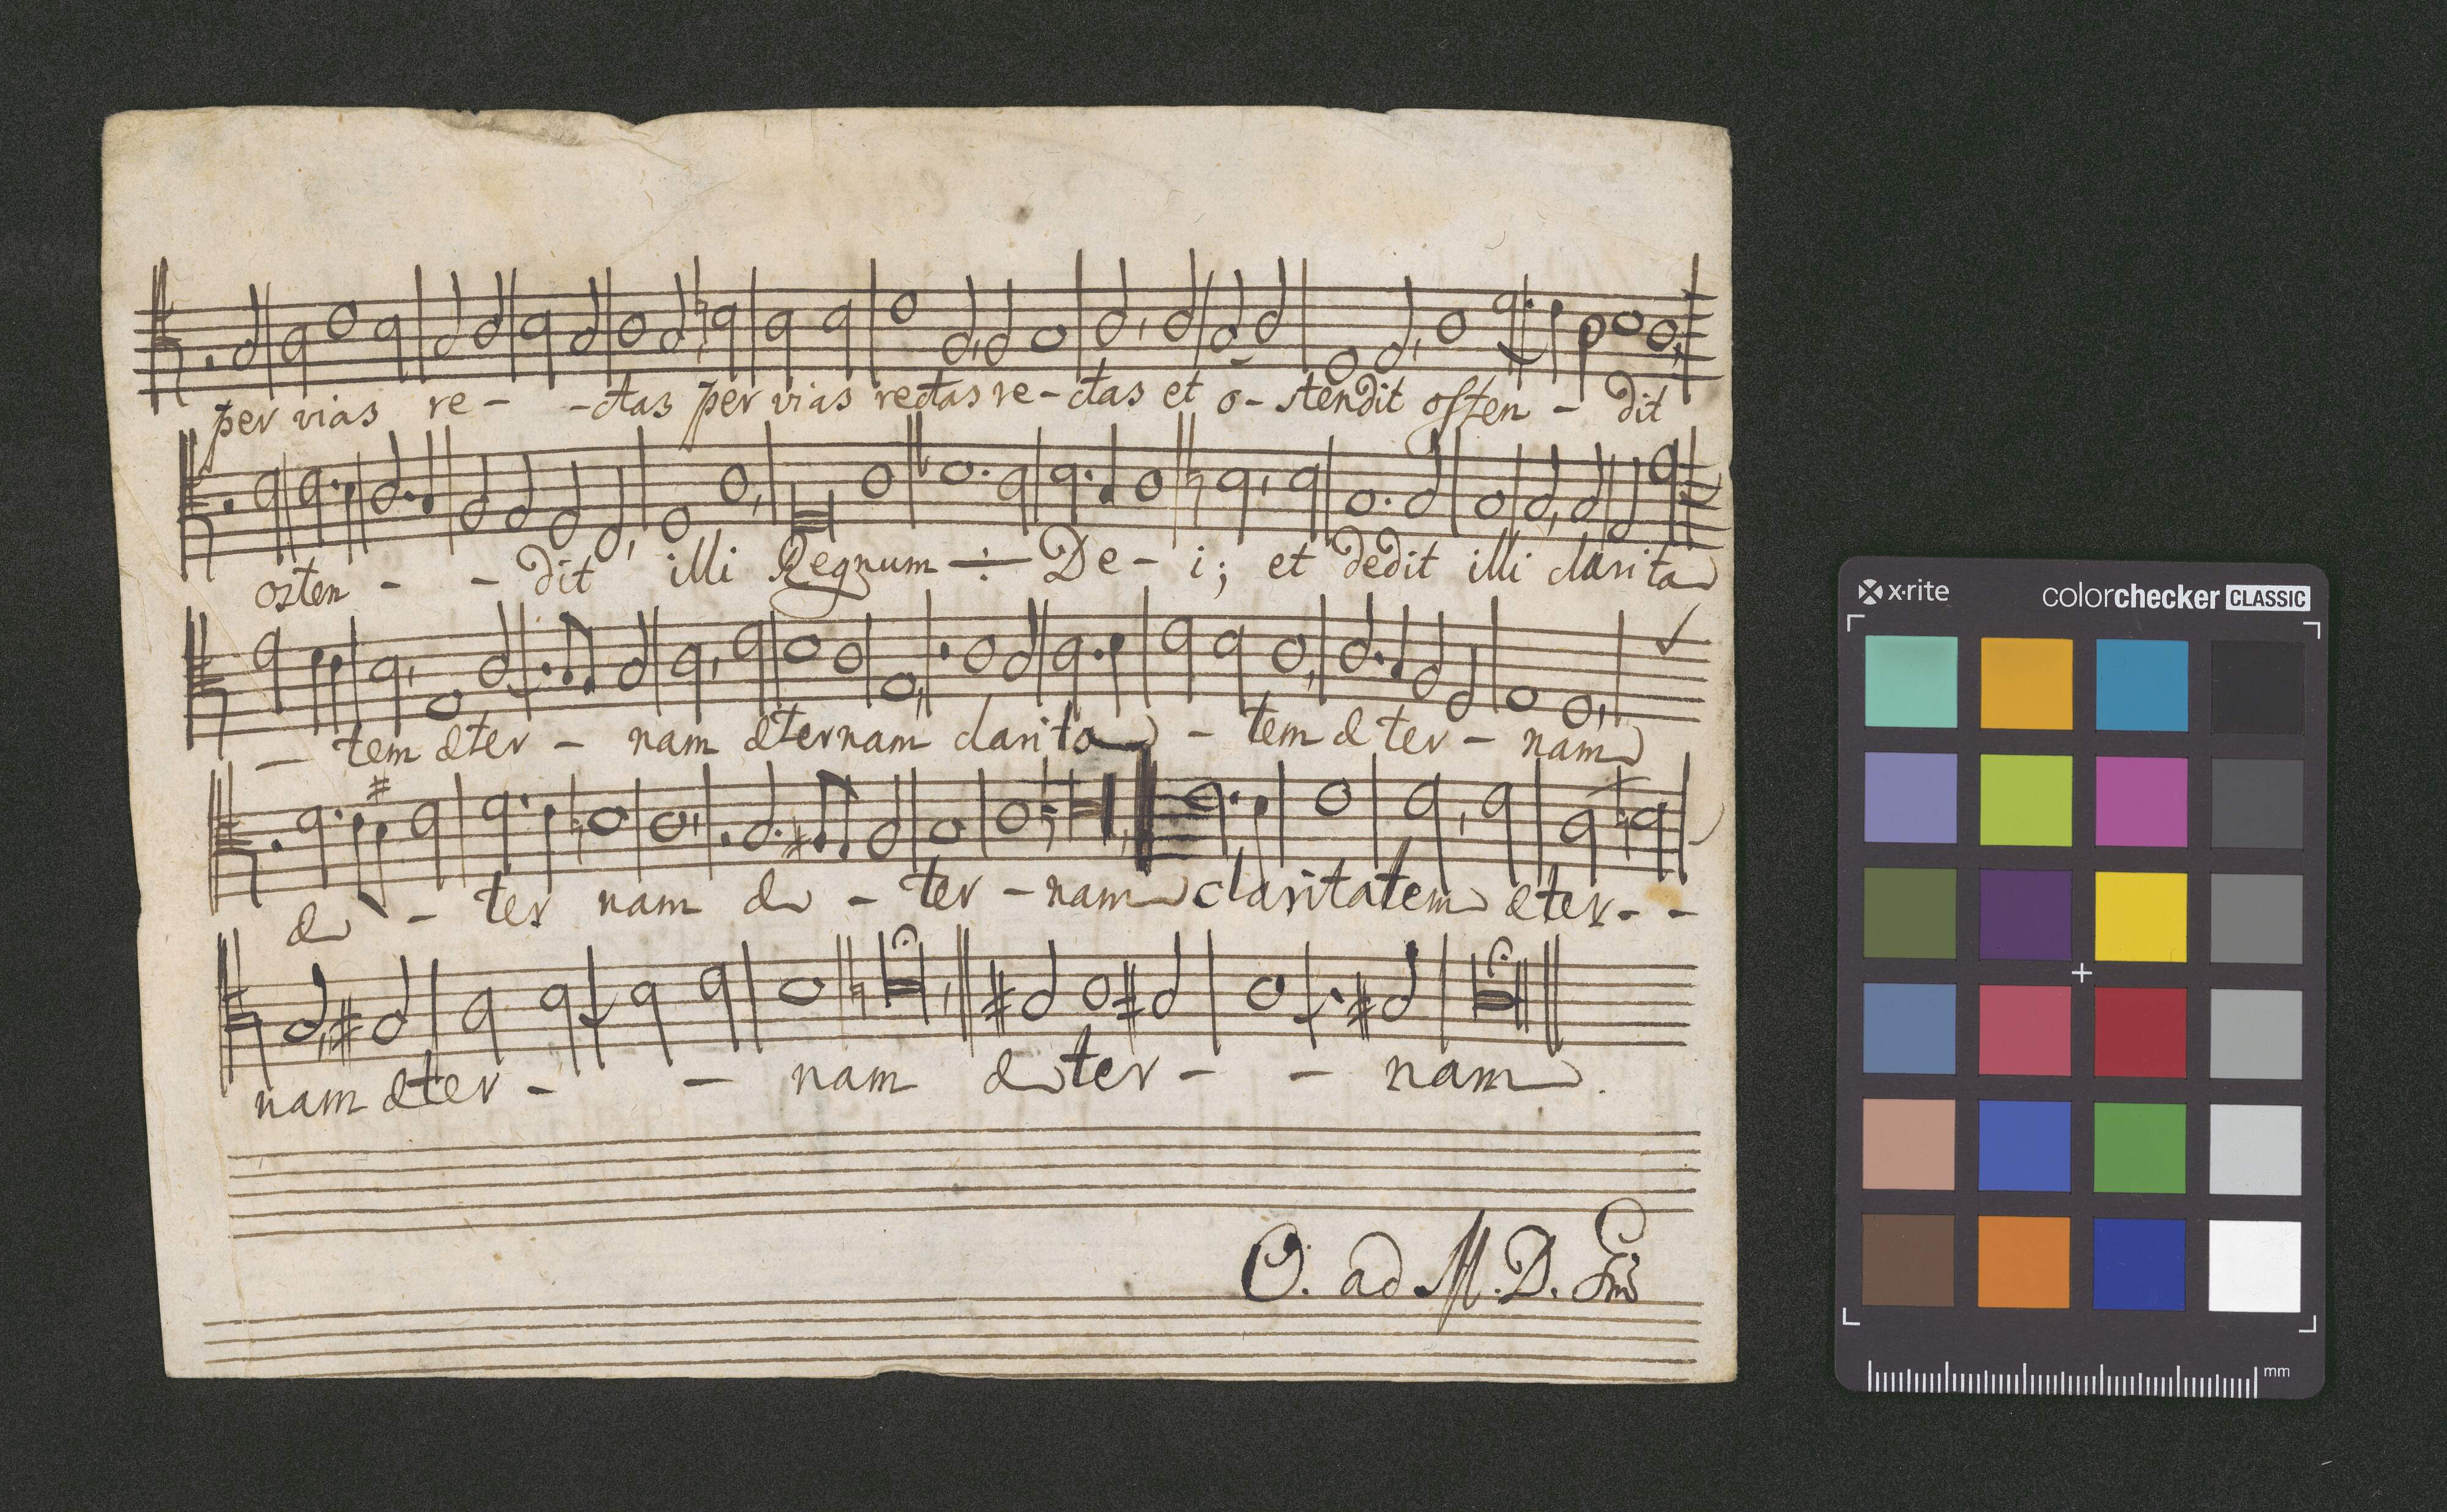 per vias re - - ctas per vias rectas re - ctas et o - stendit osten - dit
osten - - dit illi Regnum ÷ De - i; et dedit illi clarita
- tem æter - nam æternam clarita - tem æter - nam
æ - ter nam æ - ter - nam claritatem æter - -
nam æter - - nam æter - - nam.
O. ad M. D.
x·rite colorchecker CLASSIC
mm